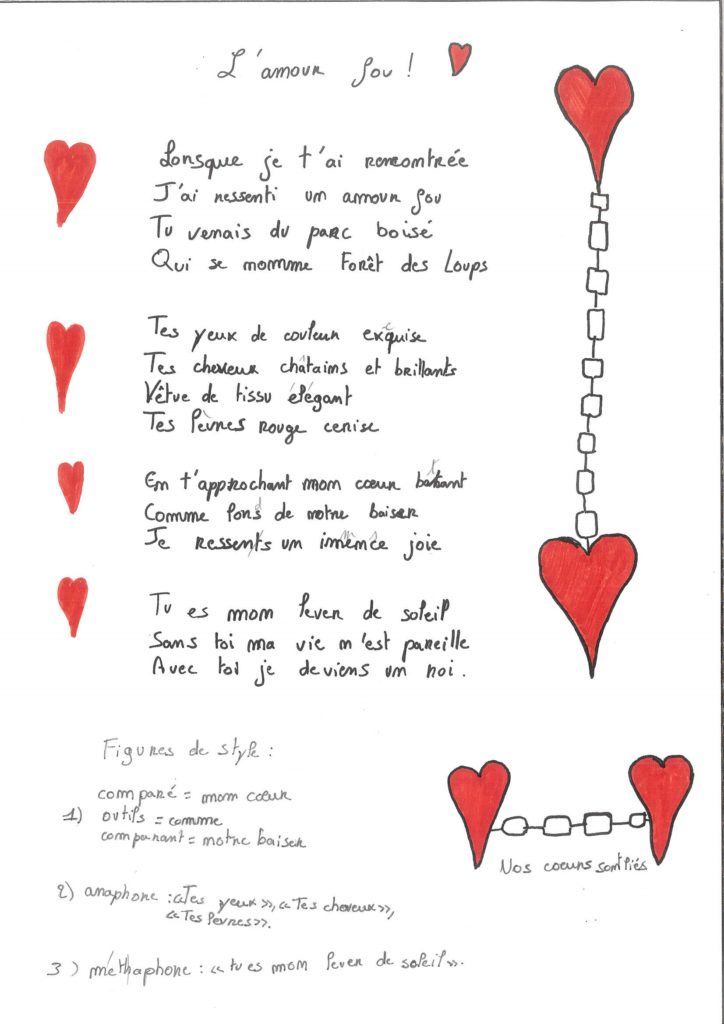 L'amour fou !
Lorsque je t'ai rencontrée
J'ai ressenti un amour fou
Tu venais du parc boisé
Qui se nomme Forêt des Loups
Tes yeux de couleur exquise
Tes cheveux châtains et brillants
Vêtue de tissu élégant
Tes lèvres rouge cerise
En t'approchant mon cœur battant
Comme fond de notre baiser
Je ressents un immence joie
Tu es mon lever de soleil
Sans toi ma vie n'est pareille
Avec toi je deviens un roi.
Figures de style :
1) comparé = mon cœur
outils = comme
comparant = notre baiser
Nos coeurs sont liés
2) anaphore : «Tes yeux», «Tes cheveux»,
«Tes lèvres».
3) méthaphore : «tu es mon lever de soleil».